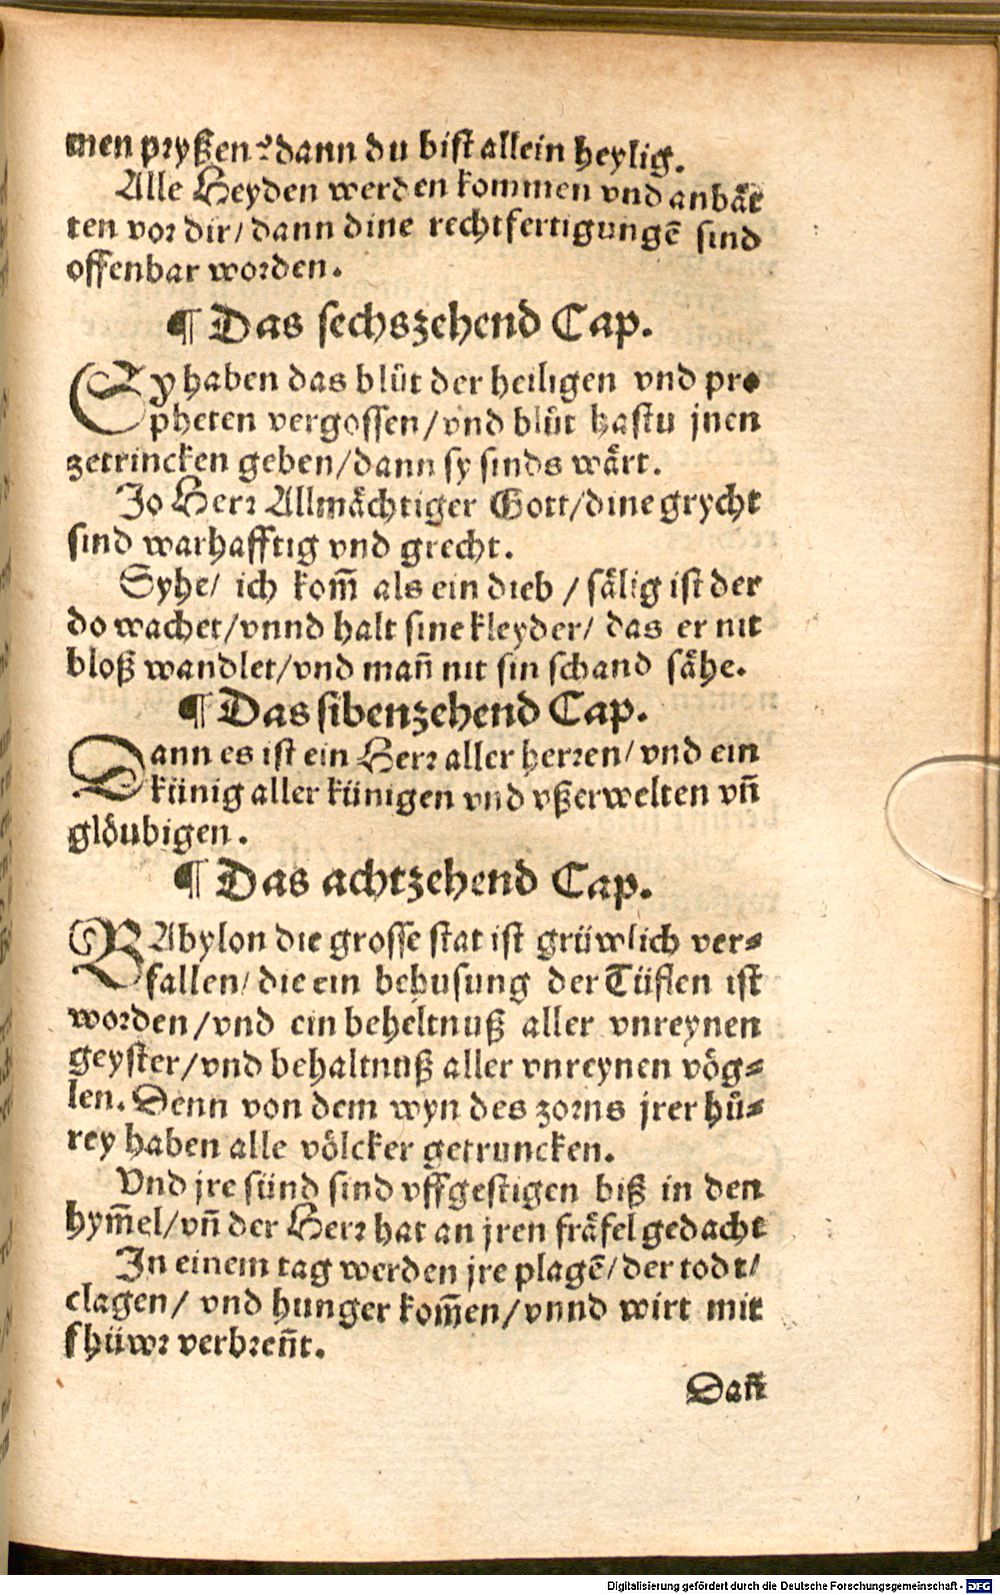 men pryßen? dann du bist allein heylig.
Alle Heyden werden kommen vnd anbät
ten vor dir/ dann dine rechtfertigungē sind
offenbar worden.
¶ Das sechszehend Cap.
Sy haben das blůt der heiligen vnd pro
pheten vergossen/vnd blůt hastu jnen
zetrincken geben/dann sy sinds wärt.
Jo Herr Allmächtiger Gott/dine grycht
sind warhafftig vnd grecht.
Syhe/ ich kom̄ als ein dieb / sälig ist der
do wachet/vnnd halt sine kleyder/ das er nit
bloß wandlet/vnd man̄ nit sin schand sähe.
¶ Das sibenzehend Cap.
Dann es ist ein Herr aller herren/ vnd ein
künig aller künigen vnd vßerwelten vn̄
glöubigen.
¶ Das achtzehend Cap.
BAbylon die grosse stat ist grüwlich ver⸗
fallen/ die ein behusung der Tüflen ist
worden/vnd ein beheltnuß aller vnreynen
geyster/vnd behaltnuß aller vnreynen vög⸗
len. Denn von dem wyn des zorns jrer hů⸗
rey haben alle völcker getruncken.
Vnd jre sünd sind vffgestigen biß in den
hym̄el/vn̄ der Herr hat an jren fräfel gedacht
In einem tag werden jre plagē/ der todt/
clagen/ vnd hunger kom̄en/vnnd wirt mit
fhüwr verbren̄t.
Dan̄
Digitalisierung gefördert durch die Deutsche Forschungsgemeinschaft - DFG